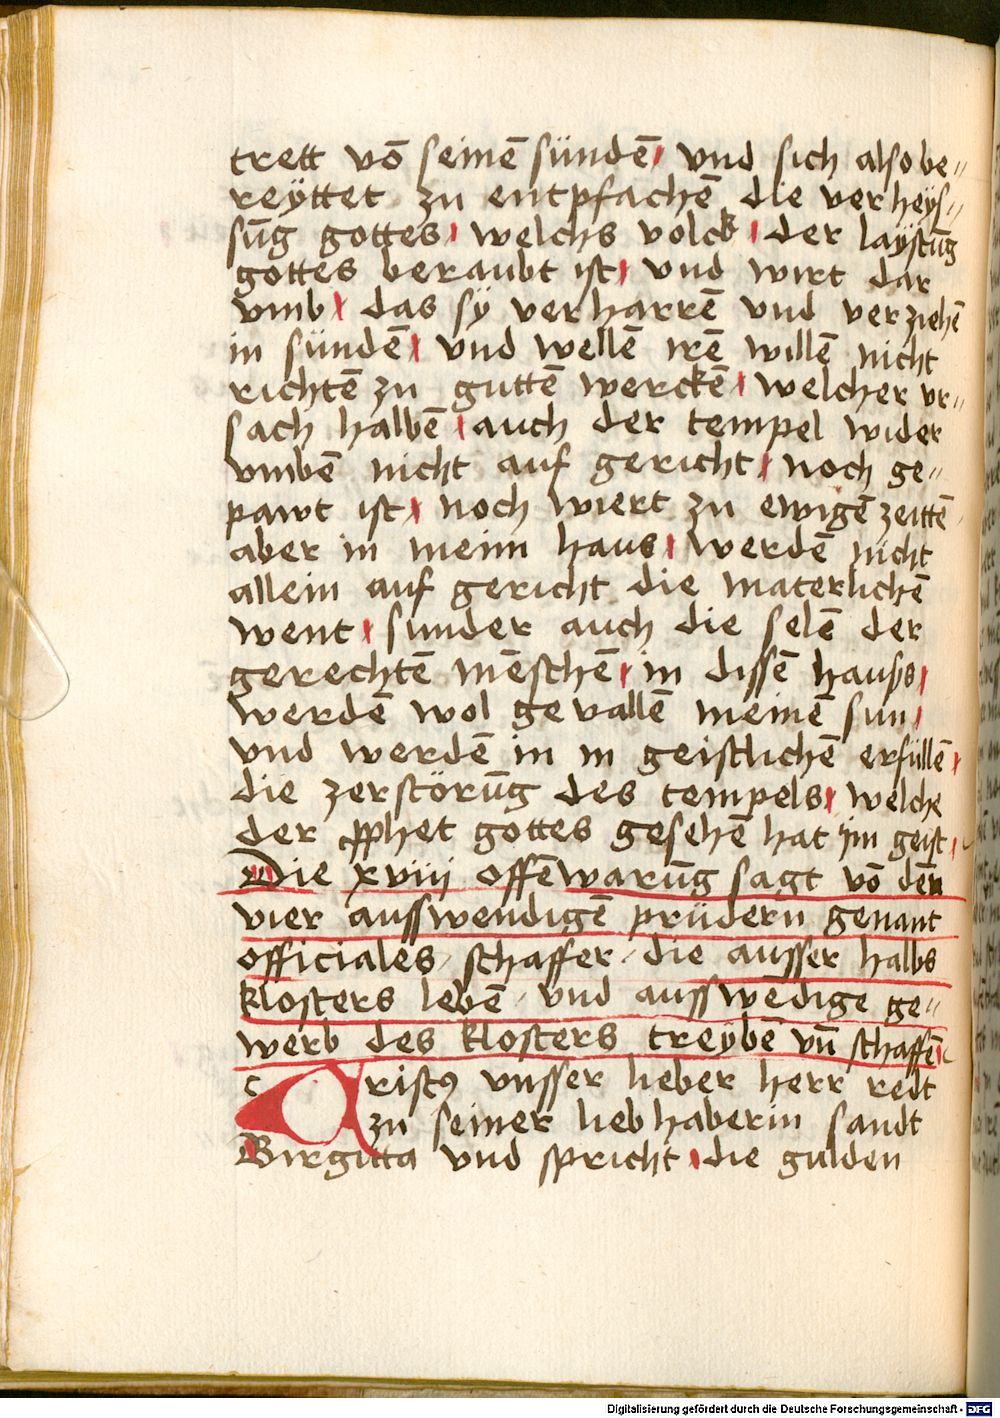 trett vō seinē sündē / vnd sich also be⸗
reÿttet zu entpfachē die verheÿs⸗
sūg gottes / welchs volck / der laÿstūg
gottes beraubt ist / vnd wirt dar
vmb / das sÿ verharrē vnd verziehē
in sündē / vnd wellē irē willē nicht
richtē zu guttē werckē / welcher vr⸗
sach halbē / auch der tempel wider
vmbē nicht auf gericht / noch ge⸗
pawt ist / noch wiert zu ewigē zeittē
aber in meim haus / werdē nicht
allein auf gericht die materlichē
went / sunder auch die selē der
gerechtē mēschē / in dissē hauss /
werdē wol gevallē meinē sun /
vnd werdē in in geistlichē erfüllē /
die zerstörūg des tempels / welche
der ꝓphet gottes gesehē hat im geist /
Die xviii offēwarūg sagt vō dēn
vier ausswendigē prüdern genant
officiales / schaffer / die ausser halbs
klosters lebē / vnd ausswēdige ge⸗
werb des klosters treybē vn̄ schaffē
cristꝰ vnsser lieber herr redt
zu seiner liebhaberin sandt
Birgitta vnd spricht / die gulden
Digitalisierung gefördert durch die Deutsche Forschungsgemeinschaft - DFG